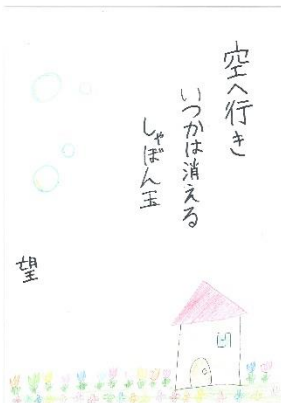 空へ行き
いつかは消える
しゃぼん玉
望